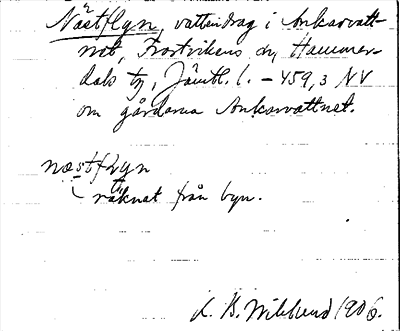 Nästflyn, vattendrag i Ankarvatt-
net, Frostvikens sn, Hammer-
dals tg, Jämtl. l. – 459,3 NV
om gårdarna Ankarvattnet.
næstflyn
räknat från byn.
K. B. Wiklund 1906.